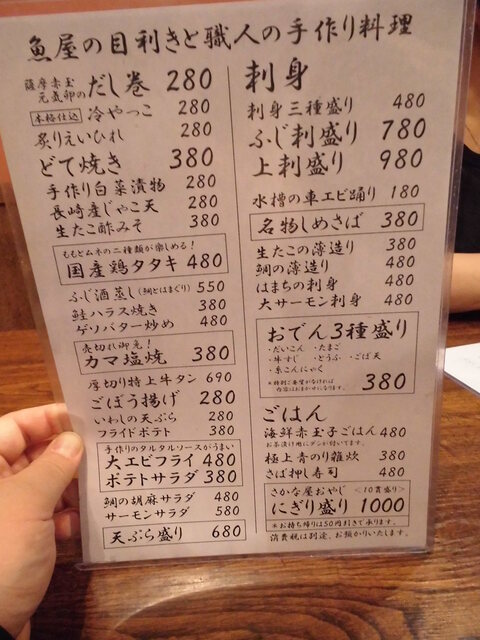 魚屋の目利きと職人の手作り料理
薩摩赤玉
元気卵の だし巻 280
本格仕込 冷やっこ 280
炙りえいひれ 280
どて焼き 380
手作り白菜漬物 280
長崎産じゃこ天 280
生たこ酢みそ 380
ももとムネの二種類が楽しめる！
国産鶏タタキ 480
ふじ酒蒸し (鯛とはまぐり) 550
鮭ハラス焼き 380
ゲソバター炒め 480
売切れ御免！
カマ塩焼 380
厚切り特上牛タン 690
ごぼう揚げ 280
いわしの天ぷら 280
フライドポテト 380
手作りのタルタルソースがうまい
大エビフライ 480
ポテトサラダ 380
鯛の胡麻サラダ 480
サーモンサラダ 580
天ぷら盛り 680
刺身
刺身三種盛り 480
ふじ刺盛り 780
上刺盛り 980
水槽の車エビ踊り 180
名物しめさば 380
生たこの薄造り 380
鯛の薄造り 480
はまちの刺身 380
大サーモン刺身 480
おでん3種盛り
・だいこん ・たまご
・牛すじ ・とうふ ・ごぼ天
・糸こんにゃく
*特別ご要望がなければ
内容はおまかせになります。 380
ごはん
海鮮赤玉子ごはん 480
お茶漬け用にダシが付いてます。
極上青のり雑炊 380
さば押し寿司 480
さかな屋おやじ <10貫盛り>
にぎり盛り 1000
*お持ち帰りは50円引きで承ります。
消費税は別途、お預かりいたします。